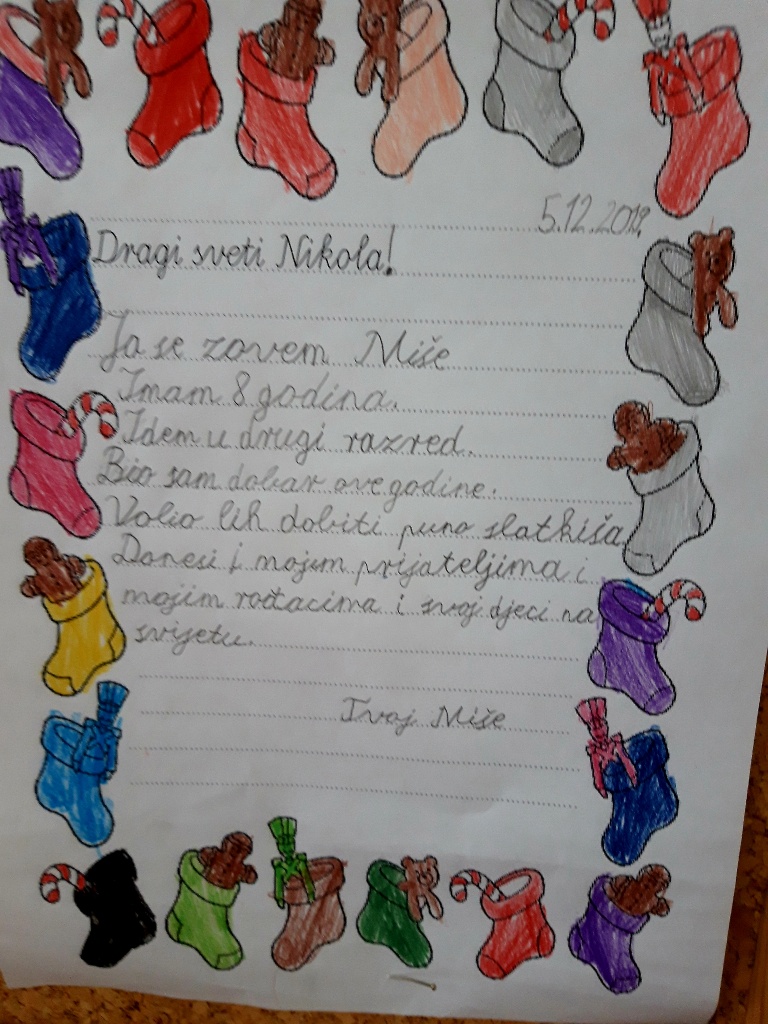 5.12.2019.
Dragi sveti Nikola!
Ja se zovem Miše
Imam 8 godina.
Idem u drugi razred.
Bio sam dobar ove godine.
Volio bih dobiti puno slatkiša
Donesi i mojim prijateljima i
mojim rođacima i svoj djeci na
svijetu.
Tvoj Miše